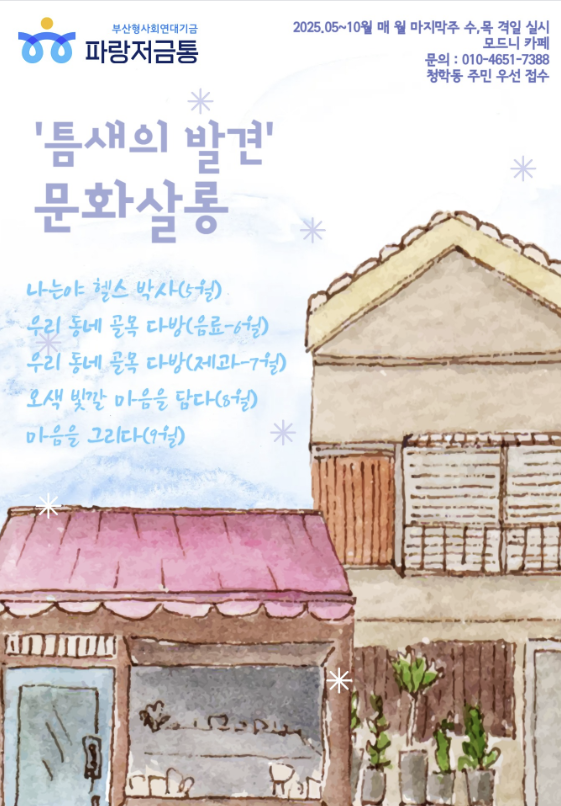 부산형사회연대기금
파랑저금통
2025.05~10월 매 월 마지막주 수,목 격일 실시
모드니 카페
문의 : 010-4651-7388
청학동 주민 우선 접수
'틈새의 발견'
문화살롱
나는야 헬스 박사(5월)
우리 동네 골목 다방(음료-6월)
우리 동네 골목 다방(제과-7월)
오색 빛깔 마음을 담다(8월)
마음을 그리다(9월)